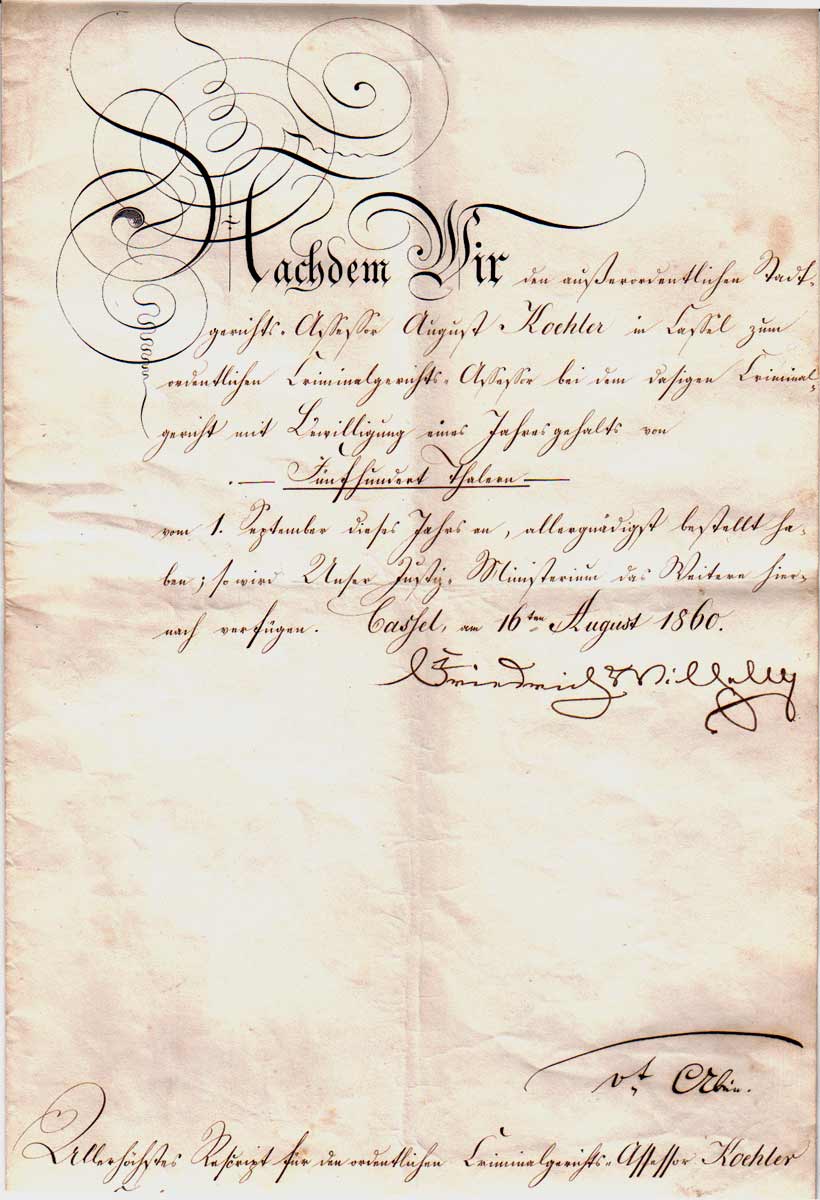 Nachdem Wir den außerordentlichen Stadt-
gerichts-Assessor August Koehler in Cassel zum
ordentlichen Criminalgerichts-Assessor bei dem dasigen Criminal-
gericht mit Bewilligung eines Jahresgehalts von
Fünfhundert Thalern
vom 1. September dieses Jahrs an, allergnädigst bestellt ha-
ben; so wird Unser Justiz-Ministerium das Weitere hier-
nach verfügen. Cassel, am 16ten August 1860.
Friedrich Wilhelm
vt
Allerhöchstes Rescript für den ordentlichen Criminalgerichts-Assessor Koehler